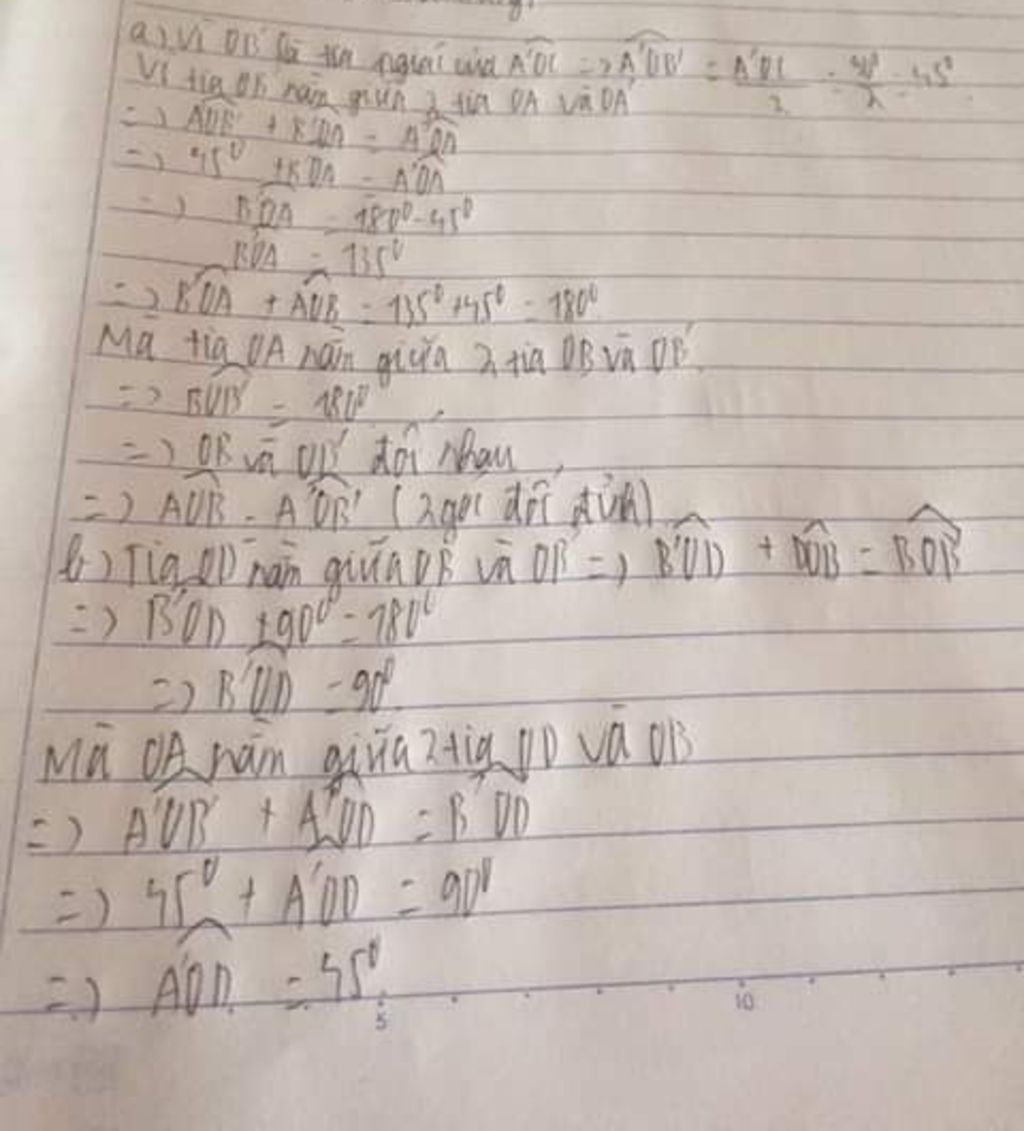 a) Vì OB' là tia phân giác của A'OC => A'OB' = A'OC/2 = 90⁰/2 = 45⁰
Vì tia OB' nằm giữa 2 tia OA và OA'
=> A'OB' + B'OA = A'OA
=> 45⁰ + B'OA = A'OA
=> B'OA = 180⁰-45⁰
B'OA = 135⁰
=> B'OA + AOB = 135⁰+45⁰ = 180⁰
Mà tia OA nằm giữa 2 tia OB và OB'
=> BOB' = 180⁰
=> OB và OB' đối nhau
=> AOB = A'OB' (2 góc đối đỉnh)
b) Tia OD nằm giữa OB' và OB => B'OD + DOB = BOB'
=> B'OD + 90⁰ = 180⁰
=> B'OD = 90⁰
Mà OA' nằm giữa 2 tia OD và OB'
=> A'OB' + A'OD = B'OD
=> 45⁰ + A'OD = 90⁰
=> A'OD = 45⁰
5 10